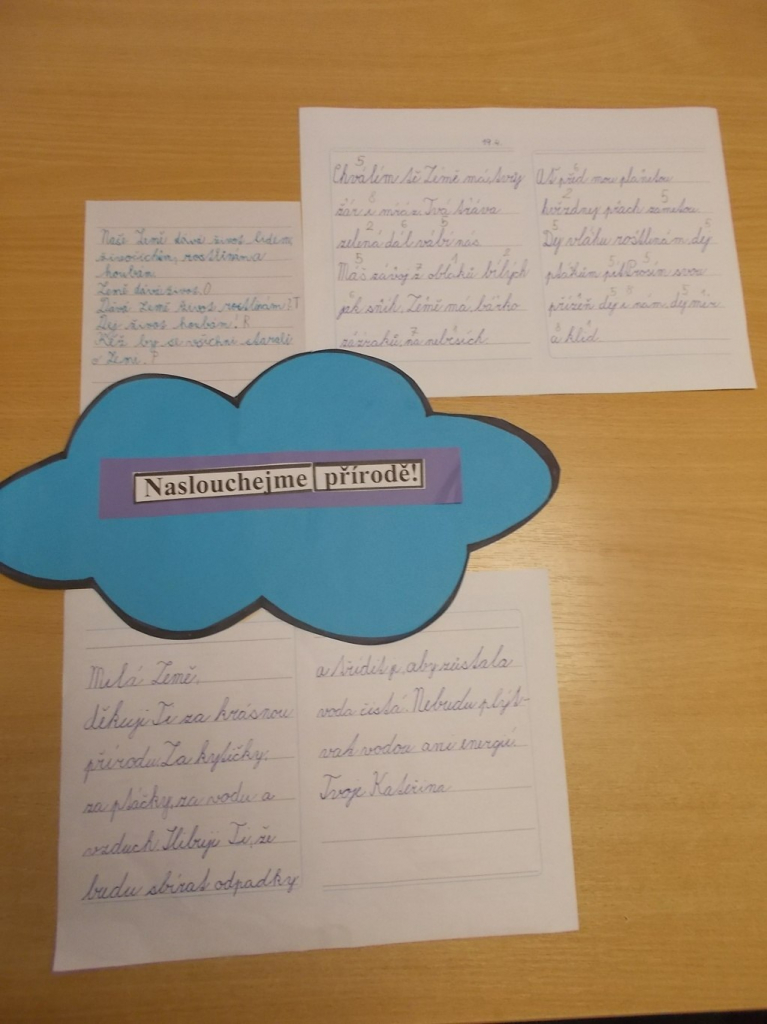 19.4.
Chválím tě Země má tvůj
žár i mráz Tvá tráva
zelená dál vábí nás
Máš závoj z oblaků bílých
jak sníh. Země má,
zázraků, na nebesích.
Ať před mou planetou
hvězdný prach zametou
Dej vláhu rostlinám dej
ptákům pít Prosím svou
přízeň dej i nám, dej mír
a klid
Naše Země dává život lidem,
živočichům, rostlinám a
houbám.
Země dává život. O
Dává Země život rostlinám?. T
Dej život houbám! R
Kéž by se všichni starali
o Zemi. P
Naslouchejme přírodě!
Milá Země,
děkuji Ti za krásnou
přírodu. Za kytičky,
za ptáčky, za vodu a
vzduch. Slibuji Ti, že
budu sbírat odpadky
a třídit, aby zůstala
voda čistá. Nebudu plýt-
vat vodou ani energií.
Tvoje Kateřina